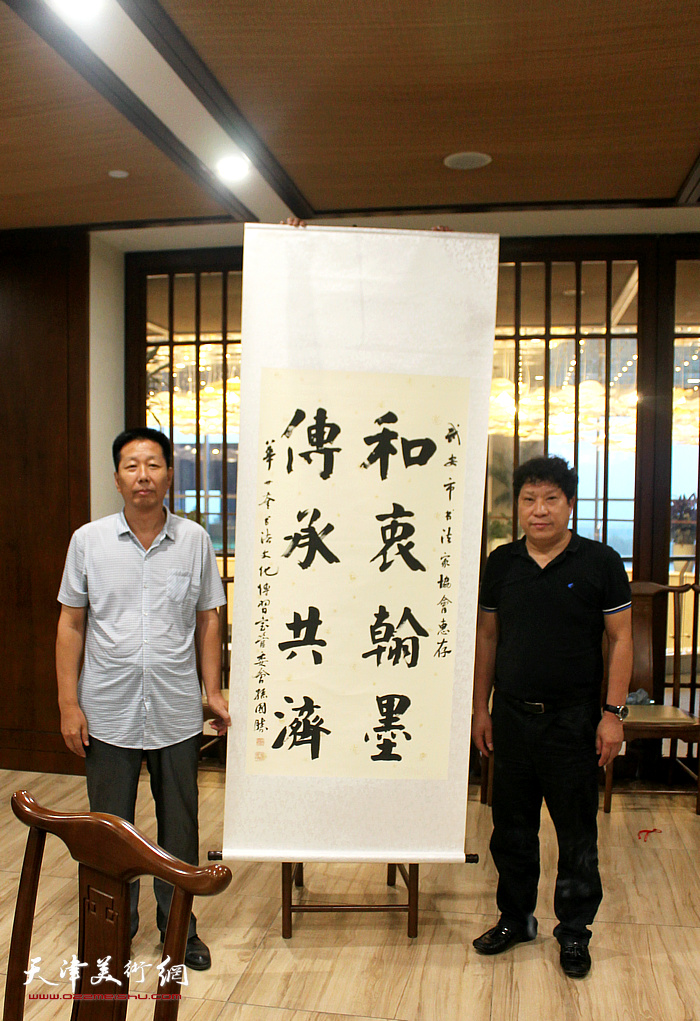 武安市书法家協會惠存
和衷翰墨
傳承共濟
華世奎书法文化傳習室管委會孫國勝
天津美術網
www.022meishu.com